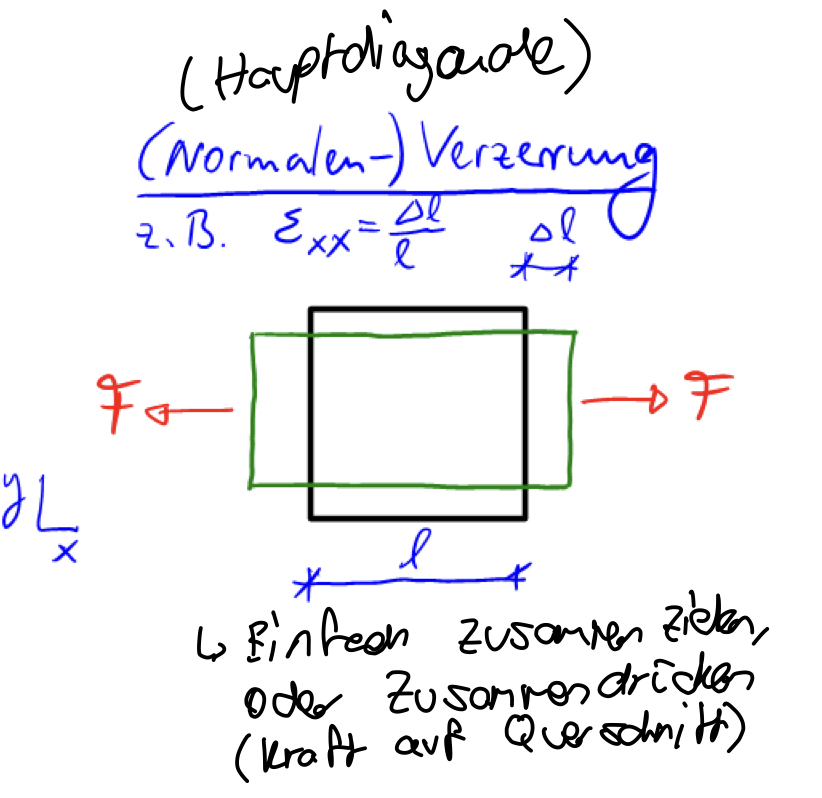 (Hauptdiagonale)
(Normalen-) Verzerrung
z.B. εxx = Δl/l
Δl
F F
y
x
l
↳ Einfach zusammen ziehen,
oder zusammendrücken
(Kraft auf Querschnitt)